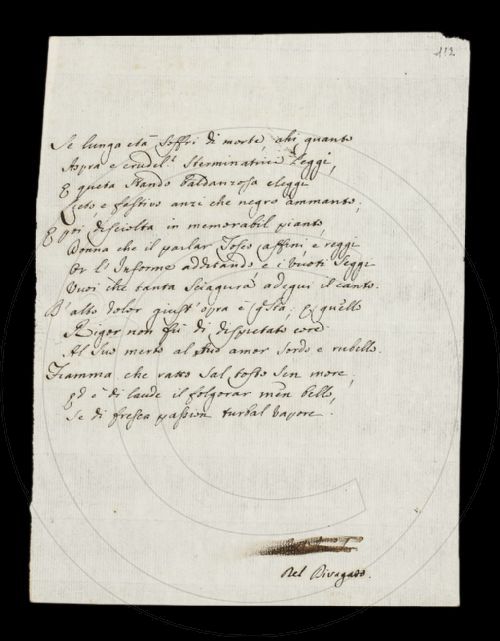 112
Se lunga età soffrì di morte, ahi quanto
Aspra e crudel! sterminatrici leggi,
E queta stando baldanzosa eleggi
Lieto, e festivo anzi che negro ammanto;
E poi disciolta in memorabil pianto,
Donna che il parlar Tosco affini, e reggi
Or l'Informe additando, e i vuoti seggi
Vuoi che tanta sciagura adegui il canto.
D'alto dolor giust'opra è questa; e quello
Rigor non fu di dispietato core
Al suo merto al tuo amor sordo e rubello.
Fiamma che ratto sal tosto sen more,
Ed è di laude il folgorar men bello,
Se di fresca passion turbal vapore.
Del Divagato.